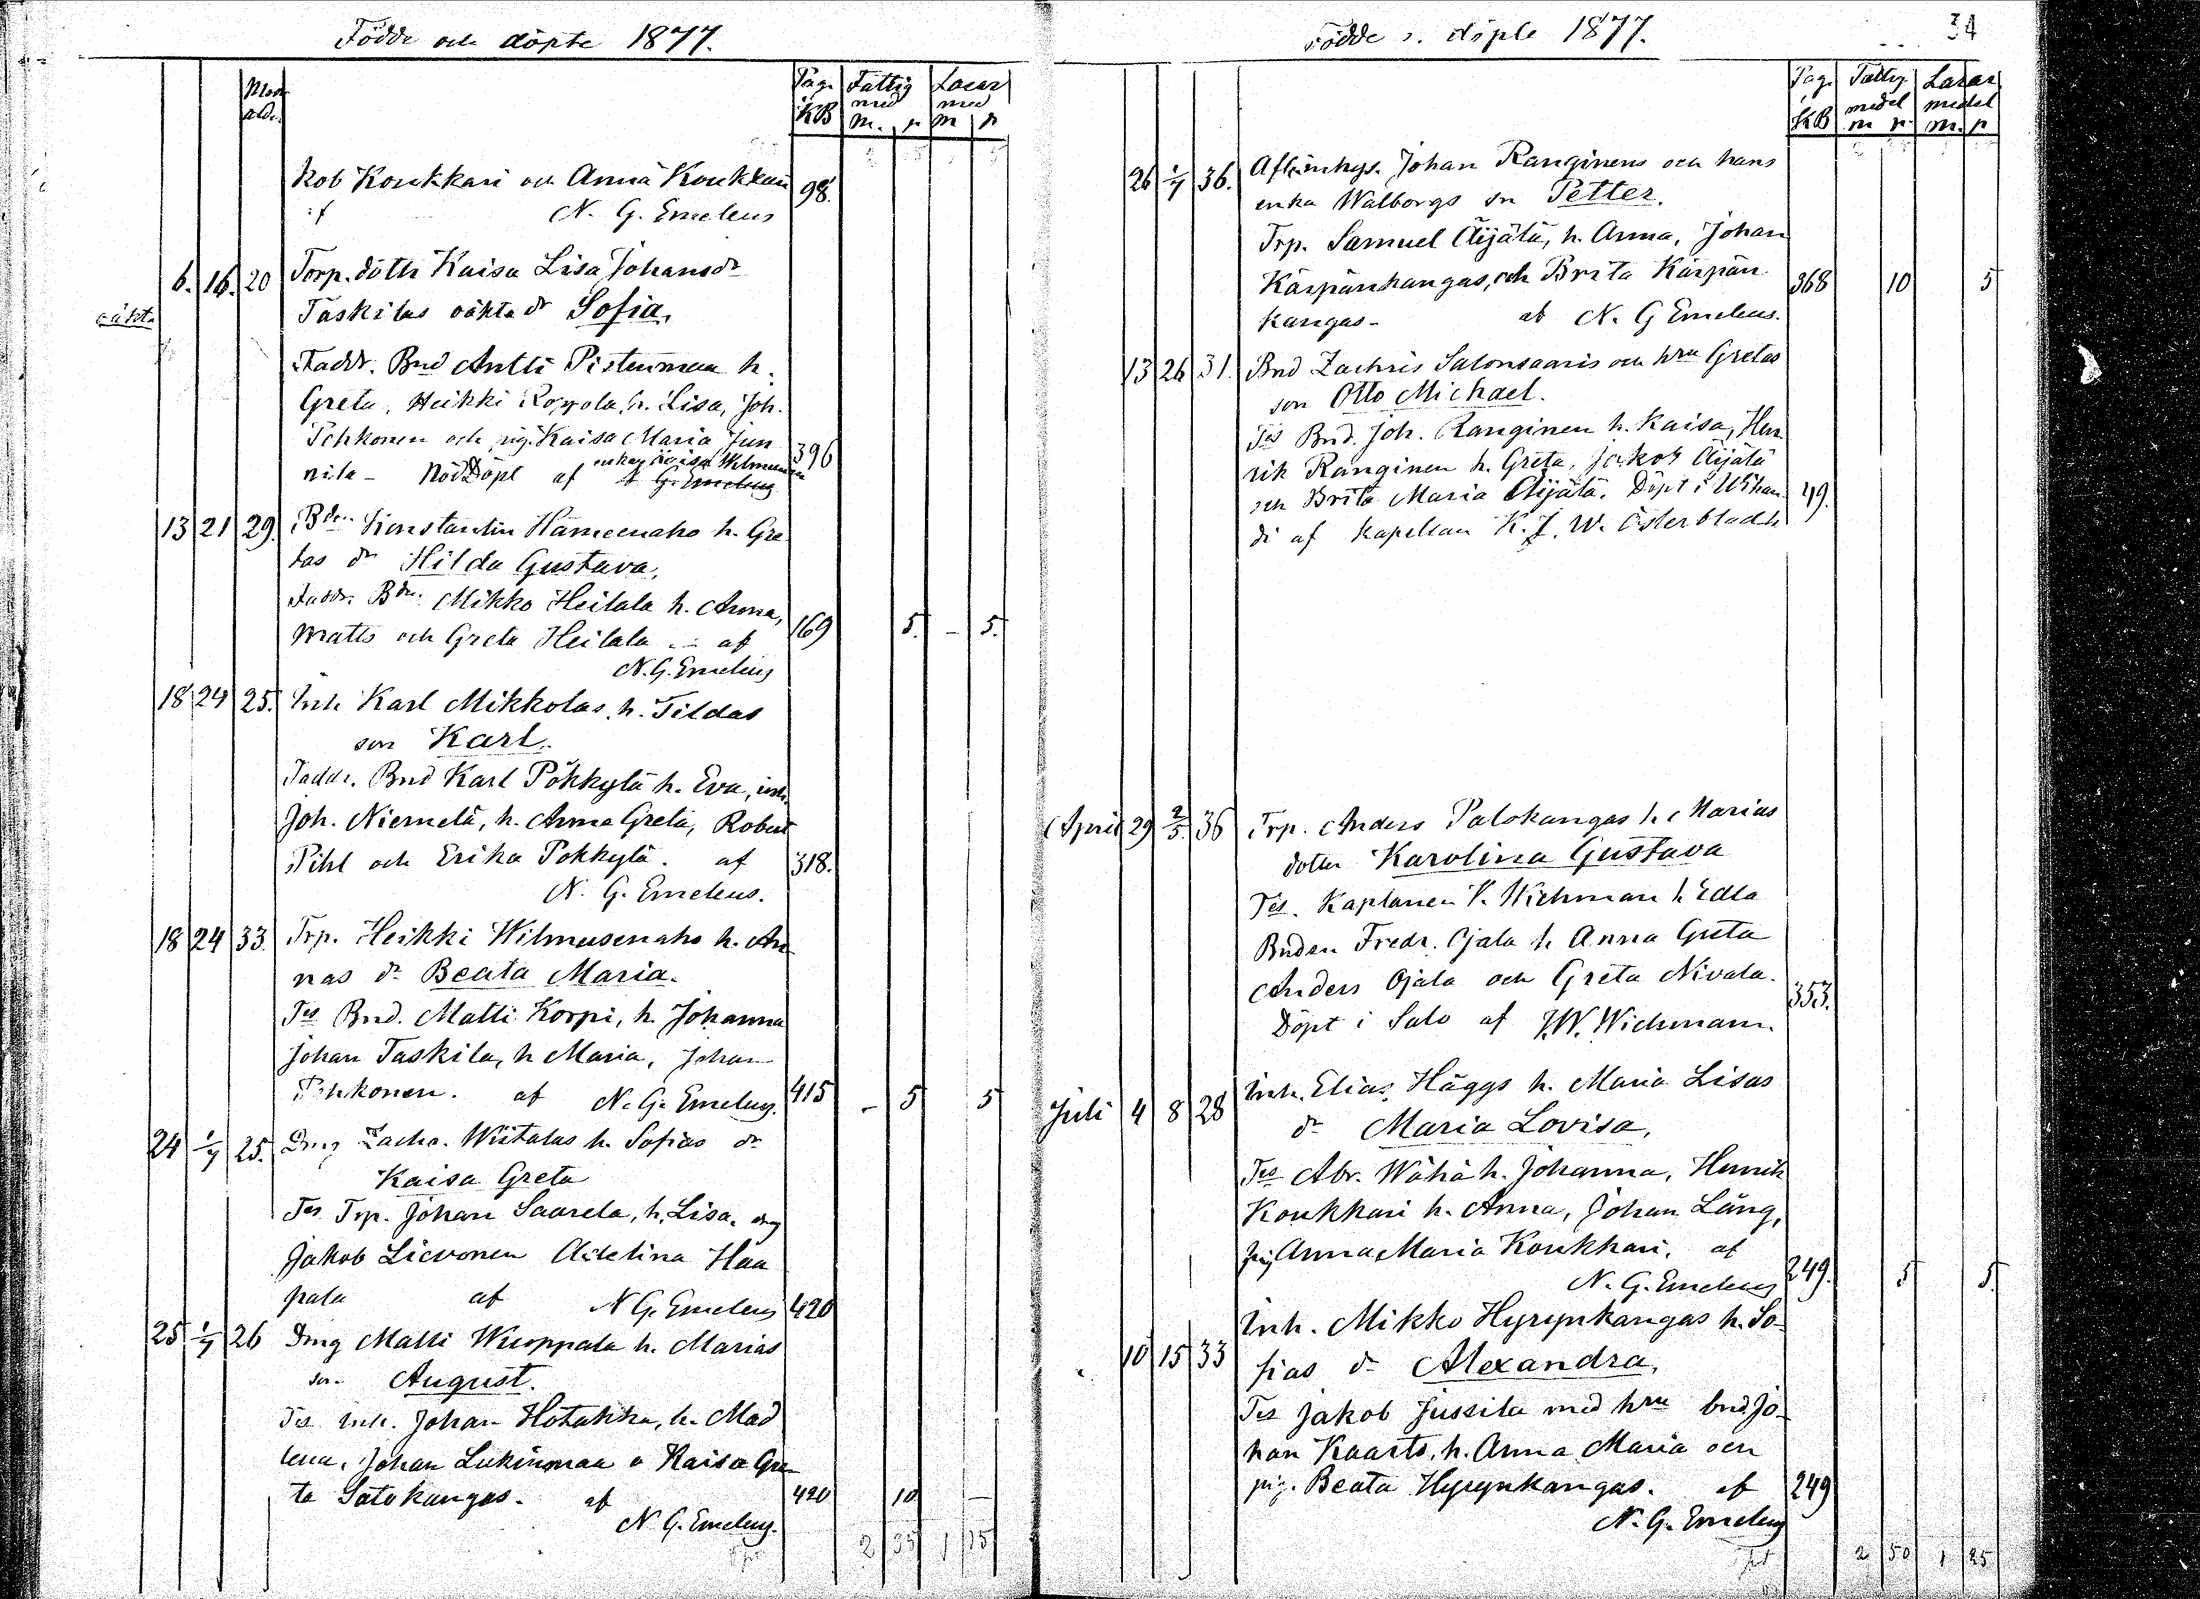 Födde och döpte 1877.
Mod. åld.
Pag. i KB
Fattig med M. p
Lazar med m p
kob Koukkari och Anna Koukkari
af N. G. Emeleus 98.
6. 16. 20 Torp. dottr Kaisa Lisa Johansdr
oäkta
Taskilas oäkta dr Sofia.
Faddr. Bnd Antti Pistenmaa h.
Greta, Heikki h. Lisa, Joh.
Pehkonen och pig. Kaisa Maria Jun
nila - Nöddöpt af enkan Kaisa 396
N. G. Emeleus
13 21 29. Bdn Konstantin Hämeenaho h. Gre
tas dr Hilda Gustava.
Faddr. Bdn Mikko Heilala h. Anna,
Matts och Greta Heilala - af 169 5. - 5.
N. G. Emeleus
18 24 25. Inh Karl Mikkolas h. Tildas
son Karl.
Faddr. Bnd Karl Pökkylä h. Eva, inh.
Joh. Niemelä, h. Anna Greta, Robert
Pihl och Erika Pökkylä. af 318.
N. G. Emeleus.
18 24 33. Trp. Heikki Wilmusenaho h. An
nas dr Beata Maria.
Tes Bnd. Matti Korpi, h. Johanna
Johan Taskila, h Maria, Johan
Pehkonen. af N. G. Emeleus. 415 - 5 5
24 1/7 25. Dräng Zachr. Wiitalas h. Sofias dr
Kaisa Greta
Tes Trp. Johan Saarela, h. Lisa, drg
Jakob Lievonen Adelina Haa
pala af N G. Emeleus 420
25 1/7 26 Dräng Matti Wuoppala h. Marias
son August.
Tes inh. Johan Hotakka, h. Mad
lena, Johan Lukinmaa o Kaisa Gre
ta Satokangas. af 420 10 -
N. G. Emeleus.
2 35 1 35
Födde o. döpte 1877.
34
Pag. i KB
Fattig medel m p.
Lazar medel m. p
26 1/7 36. Aftämhys. Johan Ranginens och hans
enka Walborgs sn Petter.
Trp. Samuel Äijälä, h. Anna, Johan
Kärpänkangas, och Brita Kärpän 368 10 5
kangas - af N. G Emeleus.
13 26 31. Bnd Zachris Salonsaaris och hru Gretas
son Otto Michael.
Tes Bnd. Joh. Ranginen h. Kaisa, Hen
rik Ranginen h. Greta, Jakob Äijälä
och Brita Maria Äijälä. Döpt i Wihan 49.
di af kapellan K. J. W. Österbladh
April 29 2/5. 36 Trp. Anders Palokangas h. Marias
dotter Karolina Gustava
Tes. Kaplanen V. Wichman h Edla
Bnden Fredr. Ojala h Anna Greta
Anders Ojala och Greta Nivala. 353.
Döpt i Salo af J. W. Wichmann.
Juli 4 8 28 Inh. Elias Häggs h. Maria Lisas
dr Maria Lovisa.
Tes Abr. Wähä h. Johanna, Henrik
Koukkari h. Anna, Johan Lång,
pig Anna Maria Koukkari. af
N. G. Emeleus 249. 5 5.
10 15 33 Inh. Mikko Hyrynkangas h. So-
fias dr Alexandra.
Tes Jakob Jussila med hru bnd Jo-
han Kaarto, h. Anna Maria och
pig. Beata Hyrynkangas. af 249
N. G. Emeleus
2 50 1 85